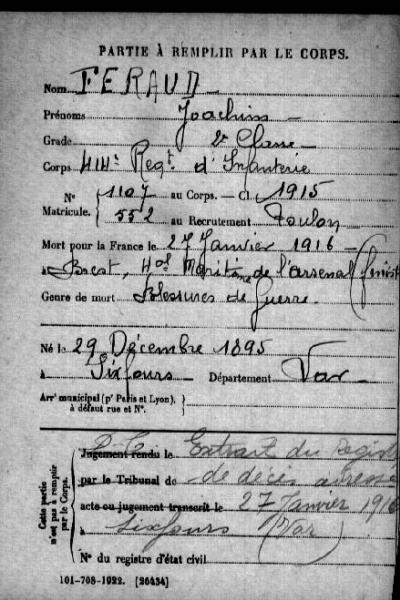 PARTIE À REMPLIR PAR LE CORPS.
Nom FERAUD
Prénoms Joachim
Grade 2e Classe
Corps 414e Regt d'Infanterie
N° Matricule. { 1107 au Corps. — Cl 1915
552 au Recrutement Toulon
Mort pour la France le 27 Janvier 1916
à Brest, Hol Maritime de l'arsenal (Finist
Genre de mort Blessures de Guerre
Né le 29 Décembre 1895
à Sixfours Département Var
Arrt municipal (pr Paris et Lyon),
à défaut rue et N°.
Cette partie n'est pas à remplir par le Corps.
Jugement rendu le Extrait du Regist
par le Tribunal de de décès adressé
acte ou jugement transcrit le 27 Janvier 1916
à Sixfours (Var)
N° du registre d'état civil
101-708-1922. [26434]